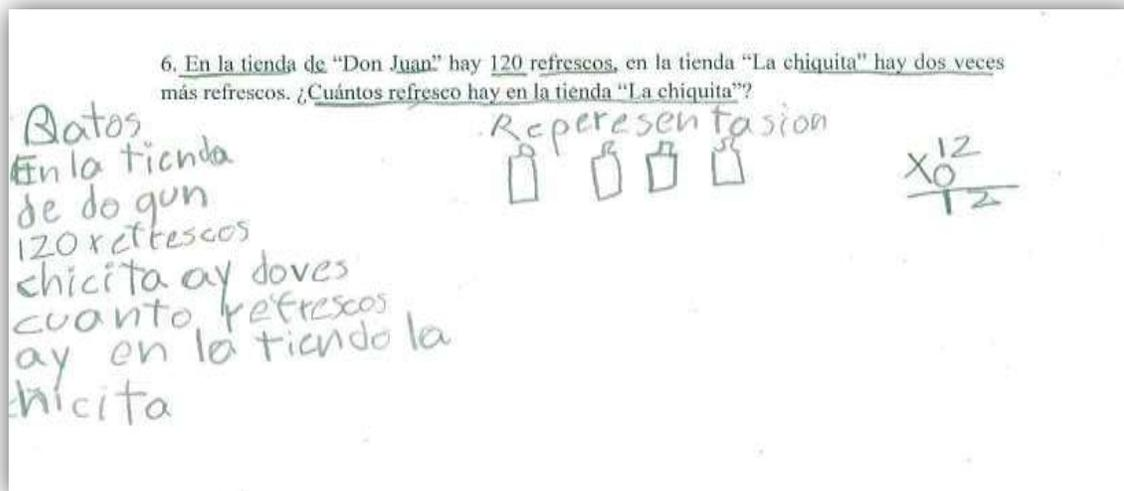 6. En la tienda de “Don Juan” hay 120 refrescos, en la tienda “La chiquita” hay dos veces
más refrescos. ¿Cuántos refresco hay en la tienda “La chiquita”?
Datos
En la tienda
de do gun
120 refrescos
chicita ay doves
cuanto refrescos
ay en la tiendo la
chicita
Reperesentasion
12
x0
12